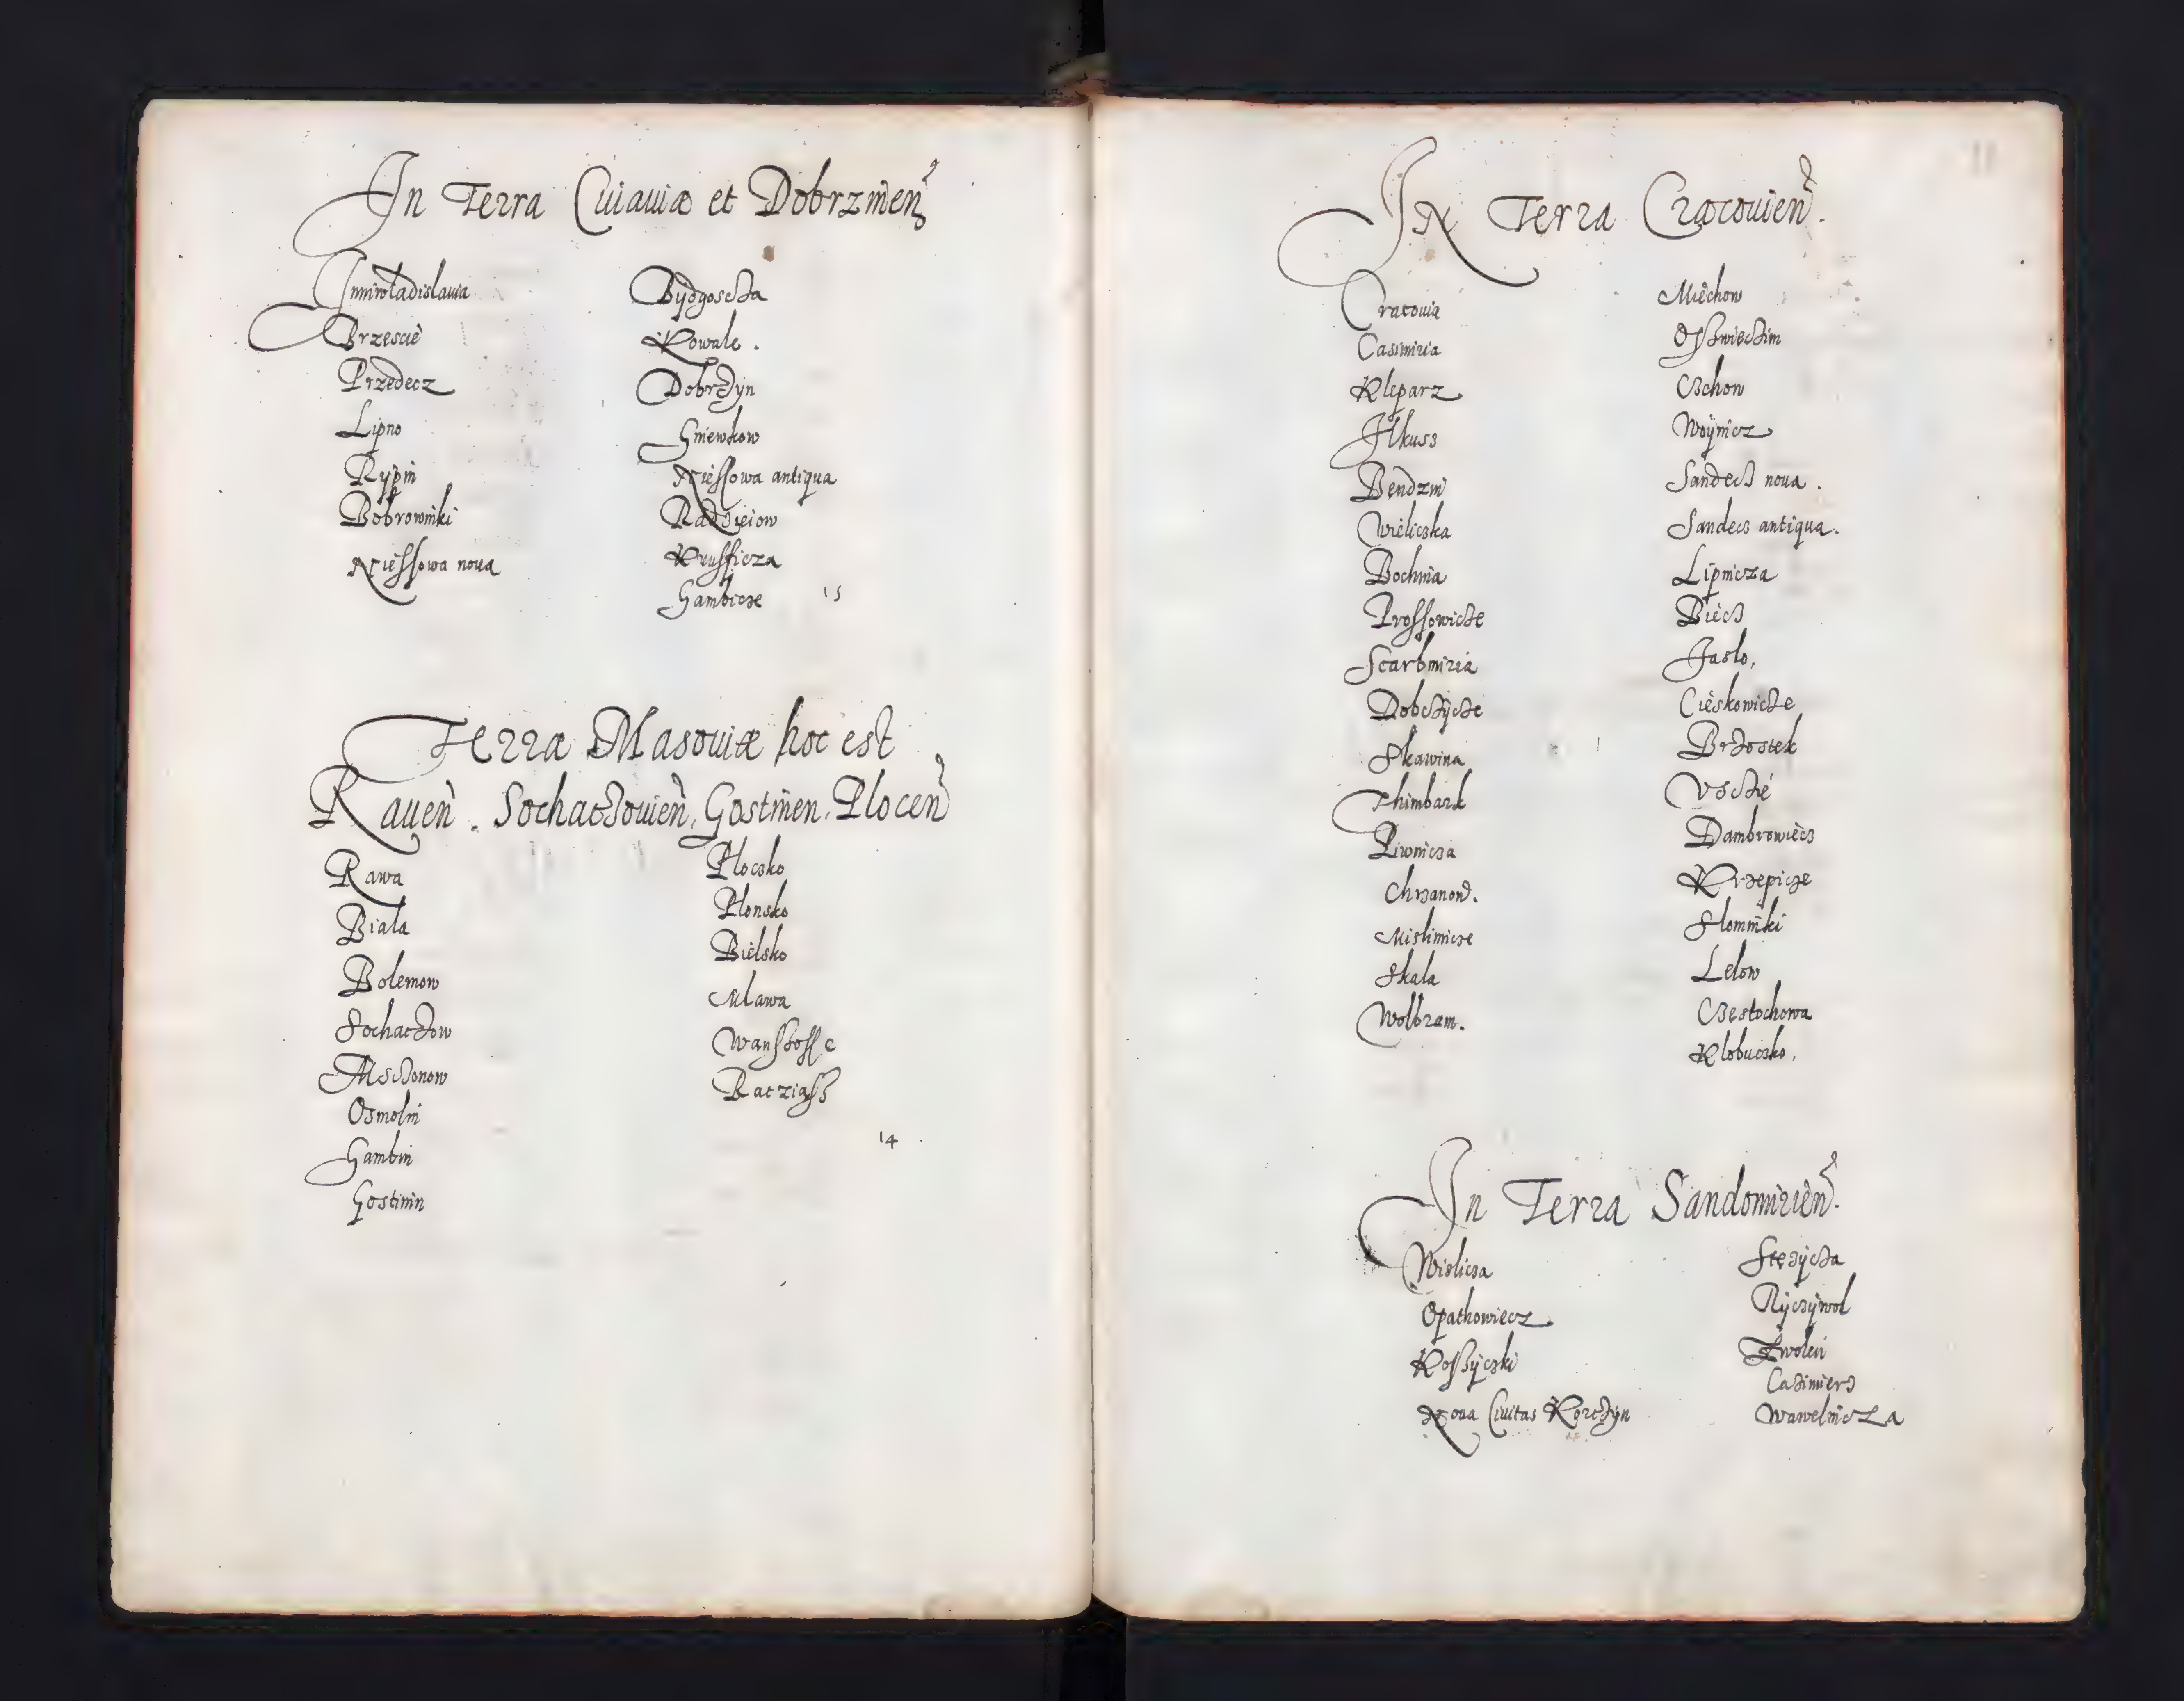 In Terra Cuiauiæ et Dobrzinen
Iuniwladislauia
Brzescie
Przedecz
Lipno
Rypin
Bobrowniki
Niessowa noua
Bydgoscza
Kowale.
Dobrzyn
Gniewkow
Niessowa antiqua
Radzieiow
Krussicza
Gambicze
15
Terra Masouiæ hoc est
Rauen. Sochaczouien, Gostinen, Plocen
Rawa
Biala
Bolemow
Sochaczow
Msczonow
Osmolin
Gambin
Gostinin
Ploczko
Plonsko
Bielsko
Mlawa
Racziass
14
In Terra Cracouien.
Cracouia
Casimiria
Kleparz
Ilkuss
Bendzin
Wieliczka
Bochnia
Prossowicze
Scarbmiria
Dobczycze
Skawina
Thimbark
Piwnicza
Chrzanow.
Mislimicze
Skala
Wolbram.
Miechow
Osswieczim
Czchow
Woynicz
Sandecz noua.
Sandecz antiqua.
Lipnicza
Biecz
Jaslo,
Cieskowicze
Brzostek
Vscze
Dambrowiecz
Krzepicze
Slomniki
Lelow
Czestochowa
Klobuczko.
In Terra Sandomirien.
Wislicza
Opathowiecz
Kossyczki
Noua Ciuitas Korczyn
Stezycza
Ryczywol
Zwolen
Cazimierz
Wawelnicza